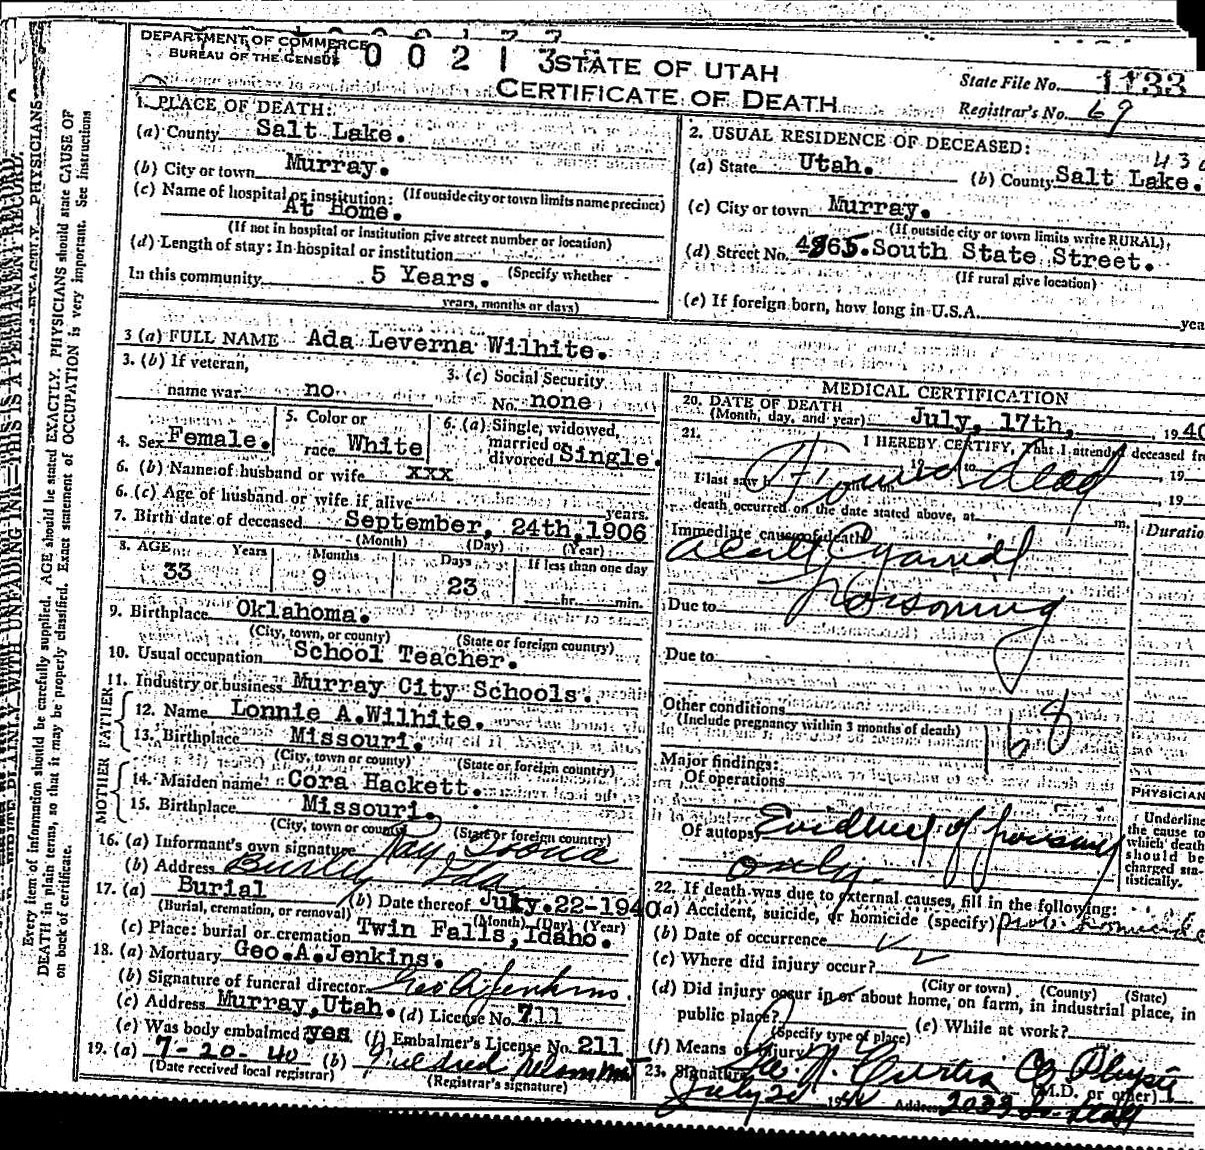 DEPARTMENT OF COMMERCE
BUREAU OF THE CENSUS
0 0 2 1 3
STATE OF UTAH
CERTIFICATE OF DEATH
State File No. 1133
Registrar's No. 69
1. PLACE OF DEATH:
(a) County Salt Lake.
(b) City or town Murray.
(c) Name of hospital or institution: (If outside city or town limits name precinct)
At Home.
(If not in hospital or institution give street number or location)
(d) Length of stay: In hospital or institution
In this community 5 Years. (Specify whether
years, months or days)
2. USUAL RESIDENCE OF DECEASED:
(a) State Utah. (b) County Salt Lake.
(c) City or town Murray.
(If outside city or town limits write RURAL)
(d) Street No. 4865 South State Street.
(If rural give location)
(e) If foreign born, how long in U.S.A.
3 (a) FULL NAME Ada Leverna Wilhite.
3. (b) If veteran, name war no
3. (c) Social Security No. none
4. Sex Female.
5. Color or race White
6. (a) Single, widowed, married or divorced Single.
6. (b) Name of husband or wife xxx
6. (c) Age of husband or wife if alive years.
7. Birth date of deceased September, 24th, 1906
(Month) (Day) (Year)
8. AGE Years Months Days If less than one day
33 9 23 hr. min.
9. Birthplace Oklahoma.
(City, town, or county) (State or foreign country)
10. Usual occupation School Teacher.
11. Industry or business Murray City Schools.
FATHER
12. Name Lonnie A.Wilhite.
13. Birthplace Missouri.
(City, town or county) (State or foreign country)
MOTHER
14. Maiden name Cora Hackett.
15. Birthplace Missouri.
(City, town or county) (State or foreign country)
16. (a) Informant's own signature Ray
(b) Address Burley Ida
17. (a) Burial (b) Date thereof July.22-1940
(Burial, cremation, or removal) (Month) (Day) (Year)
(c) Place: burial or cremation Twin Falls, Idaho.
18. (a) Mortuary Geo.A.Jenkins.
(b) Signature of funeral director Geo A Jenkins
(c) Address Murray,Utah. (d) License No. 711
(e) Was body embalmed yes (f) Embalmer's License No. 211
19. (a) 7-20-40 (b) Mildred
(Date received local registrar) (Registrar's signature)
MEDICAL CERTIFICATION
20. DATE OF DEATH
(Month, day, and year) July, 17th, 1940
21. I HEREBY CERTIFY, That I attended deceased
to 19
I last saw h 19
Found dead
death occurred on the date stated above, at m.
Immediate cause of death Duration
Cyanide
Poisoning
Due to
Due to
Other conditions
(Include pregnancy within 3 months of death)
68
Major findings:
Of operations
Of autopsy Evidence of poisoning
only.
PHYSICIAN
Underline
the cause to
which death
should be
charged sta-
tistically.
22. If death was due to external causes, fill in the following:
(a) Accident, suicide, or homicide (specify) prob. homicide
(b) Date of occurrence
(c) Where did injury occur?
(City or town) (County) (State)
(d) Did injury occur in or about home, on farm, in industrial place, in
public place? (e) While at work?
(Specify type of place)
(f) Means of injury
23. Signature N. Curtis Co Physic
(M.D. or other)
July 20 1940 Address 2033 So. State
Every item of information should be carefully supplied. AGE should be stated EXACTLY. PHYSICIANS should state CAUSE OF
DEATH in plain terms, so that it may be properly classified. Exact statement of OCCUPATION is very important. See instructions
on back of certificate.